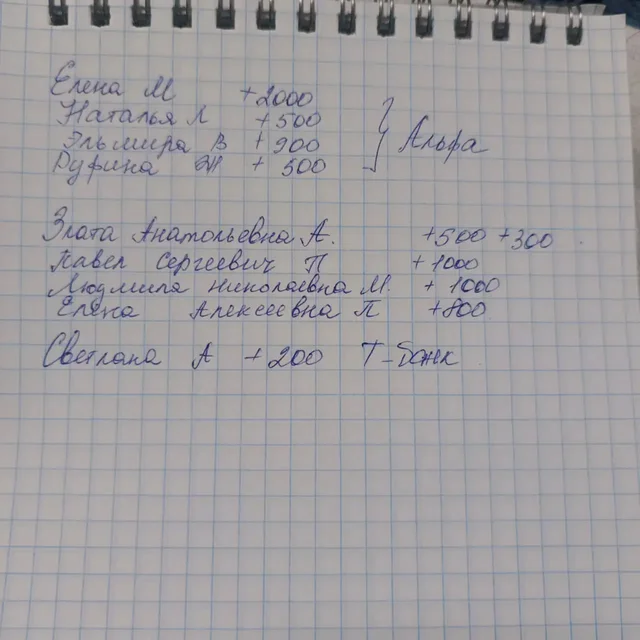 Елена М +2000
Наталья Л +500
Эльмира В +900
Ж + 500
Альфа
Злата Анатольевна А. +500 +300
Павел Сергеевич П + 1000
Людмила Николаевна М. + 1000
Елена Алексеевна П +800
Светлана А +200 Т-Банк